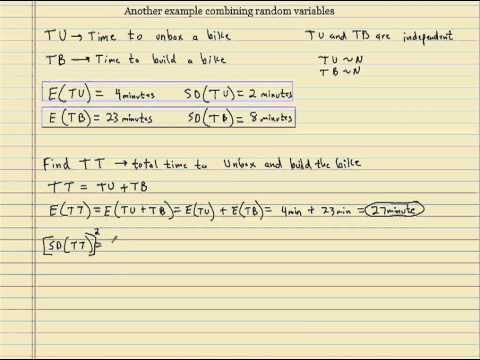 Another example combining random variables
TU → Time to unbox a bike
TU and TB are independent
TB → Time to build a bike
TU ~ N
TB ~ N
E(TU) = 4 minutes SD(TU) = 2 minutes
E(TB) = 23 minutes SD(TB) = 8 minutes
Find TT → total time to Unbox and build the bike
TT = TU + TB
E(TT) = E(TU + TB) = E(TU) + E(TB) = 4 min + 23 min = 27 minute
[SD(TT)]² =